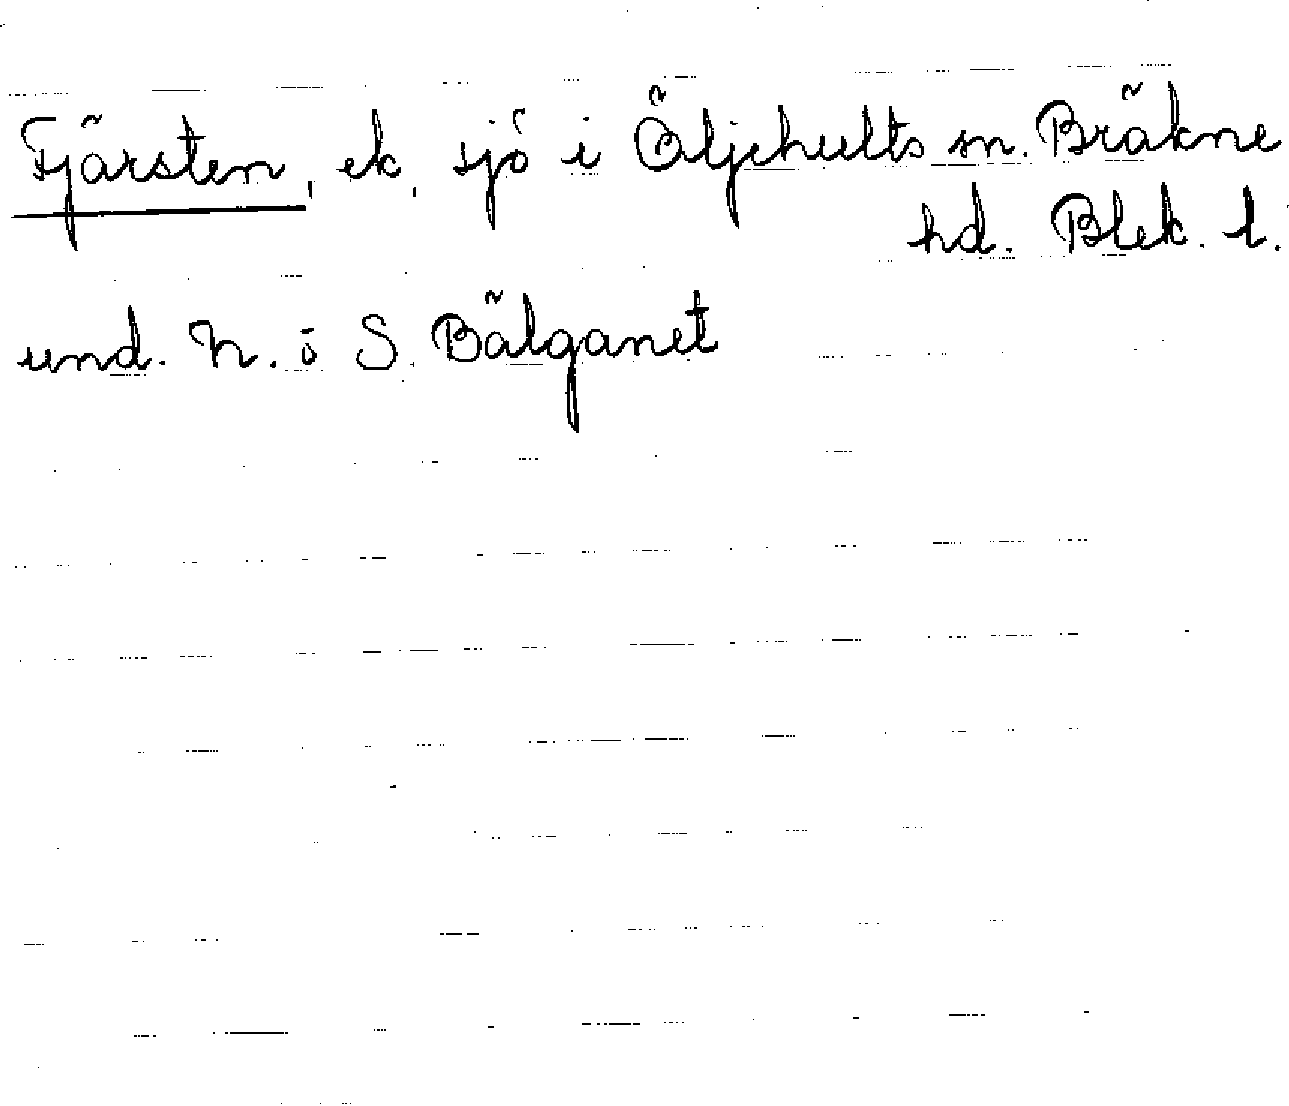 Fjärsten, ek, sjö i Öljehults sn. Bräkne
hd. Blek. l.
und. N. o S. Bälganet